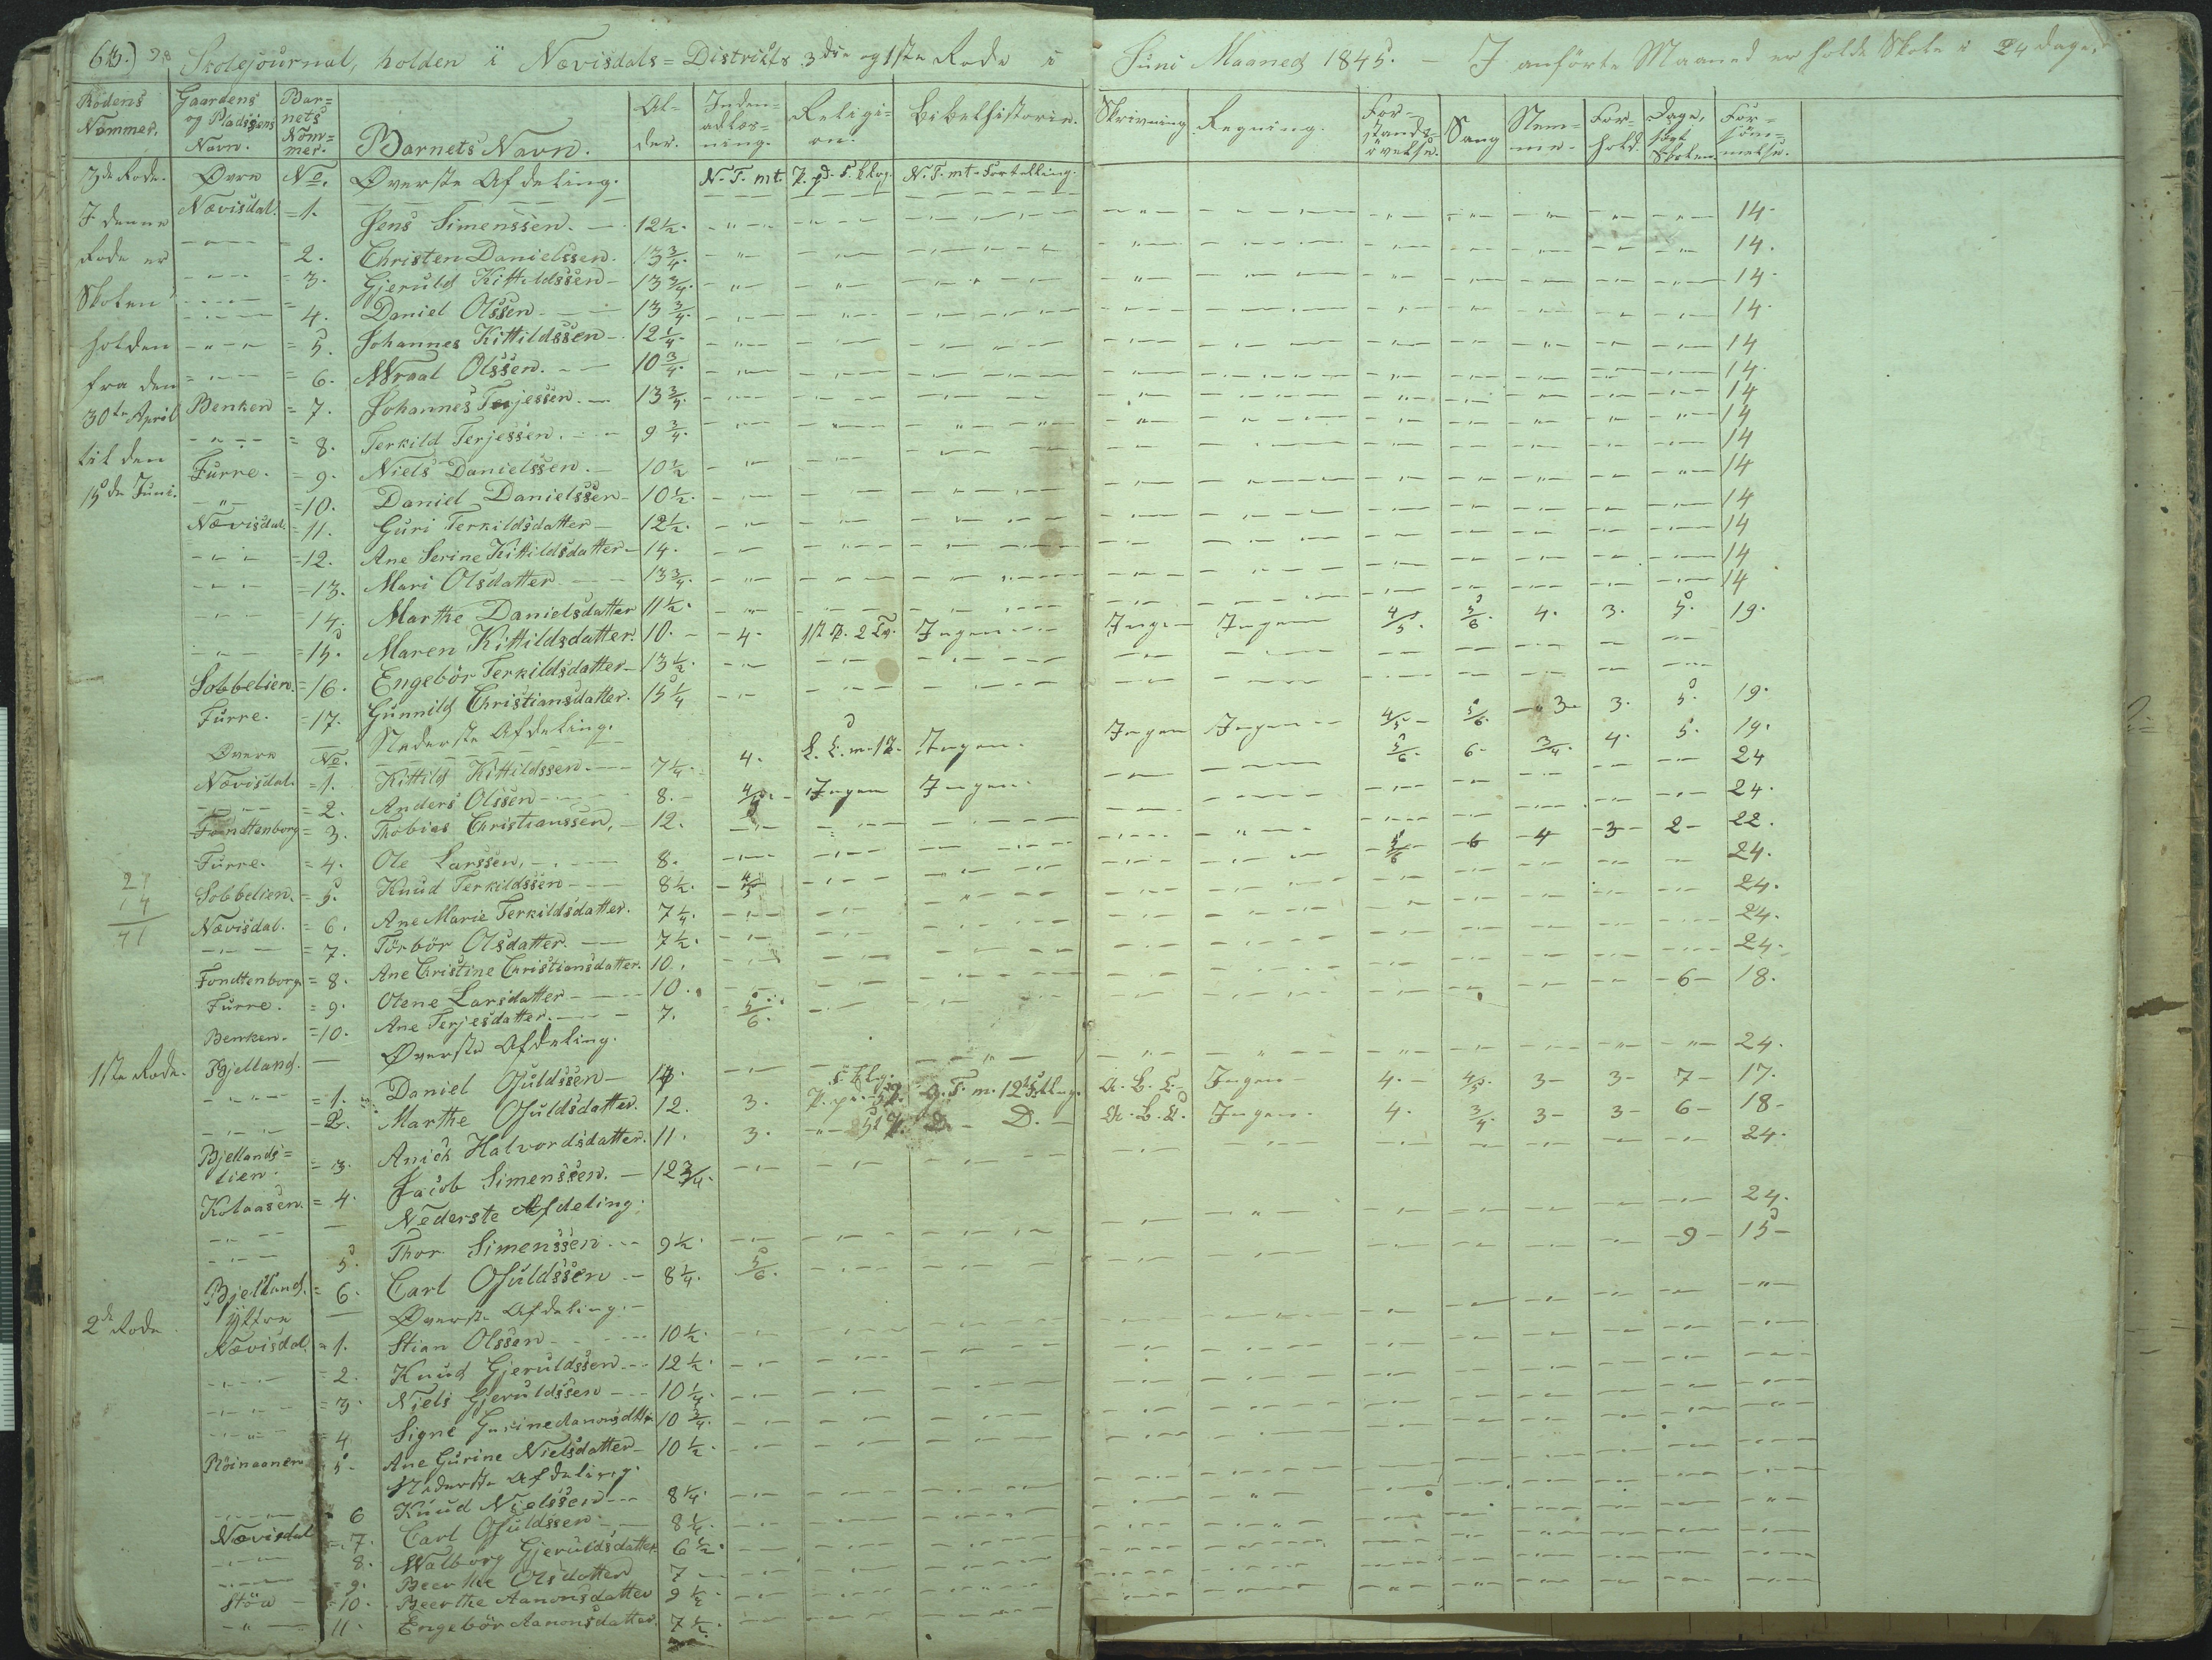 64.) Skolejournal, holden i Nævisdals=Districts 3die og 1ste Rode i Juni Maaned 1845. — I anførte Maaned er holdt Skole i 24 dage.
Rodens Nommer. Gaardens og Pladsens Navn. Barnets Nommer. Barnets Navn. Alder. Indenadlæsning. Religion. Bibelhistorie. Skrivning Regning. Forstandsøvelse. Sang Stemme. Forhold. Dage, søgt Skolen. Forsømmelse.
3de Rode. Øvre No. Øverste Afdeling. N. T. mt. N. T. mt. Fortelling.
I denne Nævisdal. = 1. Jens Simenssen. 12½. 14.
Rode er 2. Christen Danielssen. 13¾. 14.
3. Gjeruld Kittildssen 13¾. 14.
Skolen 4. Daniel Olssen 13¾. 14.
holden = 5. Johannes Kittildssen 12¼. 14
fra den = 6. Wraal Olssen. 10¾. 14.
30te April Benken = 7. Johannes Terjessen. 13¾. 14
= 8. Terkild Terjessen. 9¾. 14
til den Furre. = 9. Niels Danielssen. 10½ 14
15de Juni. = 10. Daniel Danielssen 10½. 14
Nævisdal. = 11. Guri Terkildsdatter 12½. 14
= 12. Ane Serine Kittildsdatter 14. 14
= 13. Mari Olsdatter 13¾. 14
= 14. Marthe Danielsdatter 11½. 14
= 15. Maren Kittildsdatter. 10. 4. Ingen Ingen Ingen 4/5. 5/6. 4. 3. 5. 19.
Sobbelien. = 16. Engebör Terkildsdatter 13½.
Furre. = 17. Gunnild Christiansdatter. 15¼
Øvere No. Nederste Afdeling.
Nævisdal. = 1. Kittild Kittildssen. 7¼. 4. Ingen. Ingen Ingen 4/5 5/6. 3 3. 5. 19.
= 2. Anders Olssen 8. Ingen Ingen. 5/6. 6 3/4. 4. 5. 19.
Fondtenborg = 3. Thobias Christianssen, 12. 24
Furre. = 4. Ole Larssen, 8. 24.
Sobbelien. = 5. Knud Terkildssen 8½. 4/5 5/6 6 4 3 2 22.
Nævisdal. = 6. Ane Marie Terkildsdatter. 7¼. 24.
= 7. Törbör Olsdatter. 7½. 24.
Fondtenborg = 8. Ane Christine Christiansdatter. 10. 24.
Furre. = 9. Olene Larsdatter 10. 24.
Benken. = 10. Ane Terjesdatter. 7. 5/6. 6 18.
1ste Rode. Bjelland. Øverste Afdeling.
= 1. Daniel Ouldssen 24.
2. Marthe Ouldsdatter. 12. 3. A. B. C. Ingen 4. 4/5. 3 3 7 17.
Bjellandslien. = 3. Anich Halvordsdatter. 11. 3. D. A. B. C. Ingen. 4. 3/4. 3 3 6 18
Kolaasen. = 4. Jacob Simenssen. 12¾. 24.
Nederste Afdeling.
5. Thor Simenssen 9½. 24.
Bjelland. = 6. Carl Ouldssen 8¼. 5/6. 9 15
2de Rode Yttre Øverste Afdeling.
Nævisdal. = 1. Stian Olssen 10½.
= 2. Knud Gjeruldssen 12½.
= 3. Niels Gjeruldssen 10¼.
= 4 Signe Gurine Aanonsdtr 10¾.
5 Ane Gurine Nielsdatter 10½.
Nederste Afdeling.
6 Knud Nielssen 8¼.
Nævisdal = 7. Carl Ouldssen 8¼.
8. Walborg Gjeruldsdatter 6½.
= 9. Beerthe Olsdatter 7
= 10. Beerthe Aanonsdatter 9½
11. Engebör Aanonsdatter. 7½.